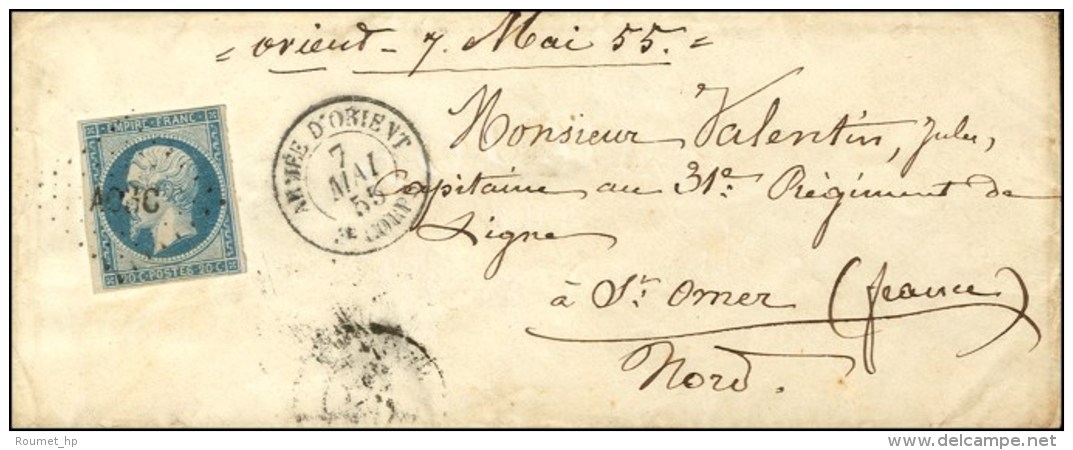 = orient - 7. Mai 55. =
EMPIRE · FRANC ·
20 C · POSTES · 20 C
ARMÉE D'ORIENT
7
MAI
55
3E CORPS
Monsieur Valentin, Jules,
Capitaine au 31e Régiment de
Ligne
à St. Omer (france)
Nord.
Roumet_hp
delcampe.net